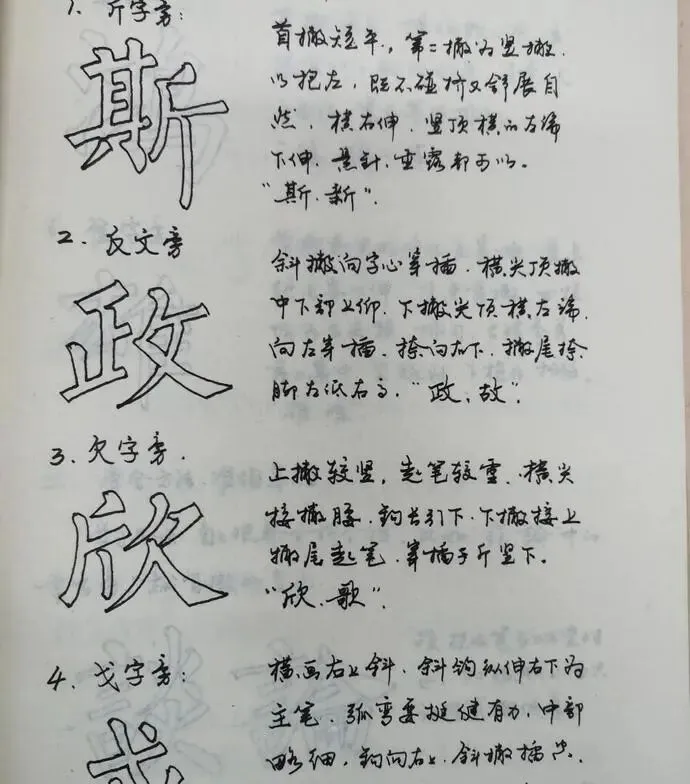 1. 斤字旁:
斯
首撇短平,第二撇为竖撇.
以把左,既不碰挤又舒展自
然.横右伸.竖顶横的左端
下伸.悬针.垂露都可以。
“斯.新”.
2. 反文旁
政
斜撇向字心穿插.横尖顶撇
中下部上仰.下撇尖顶横左端.
向左穿插.捺向右下.撇尾捺
脚左低右高.“政、故”.
3. 欠字旁.
欣
上撇较竖,起笔较重.横尖
接撇腰.钩长引下.下撇接上
撇尾起笔.穿插于斤竖下。
“欣.歌”.
4. 戈字旁:
横画右上斜.斜钩纵伸右下为
主笔.弧弯要挺健有力.中部
略细,钩向右上.斜撇插